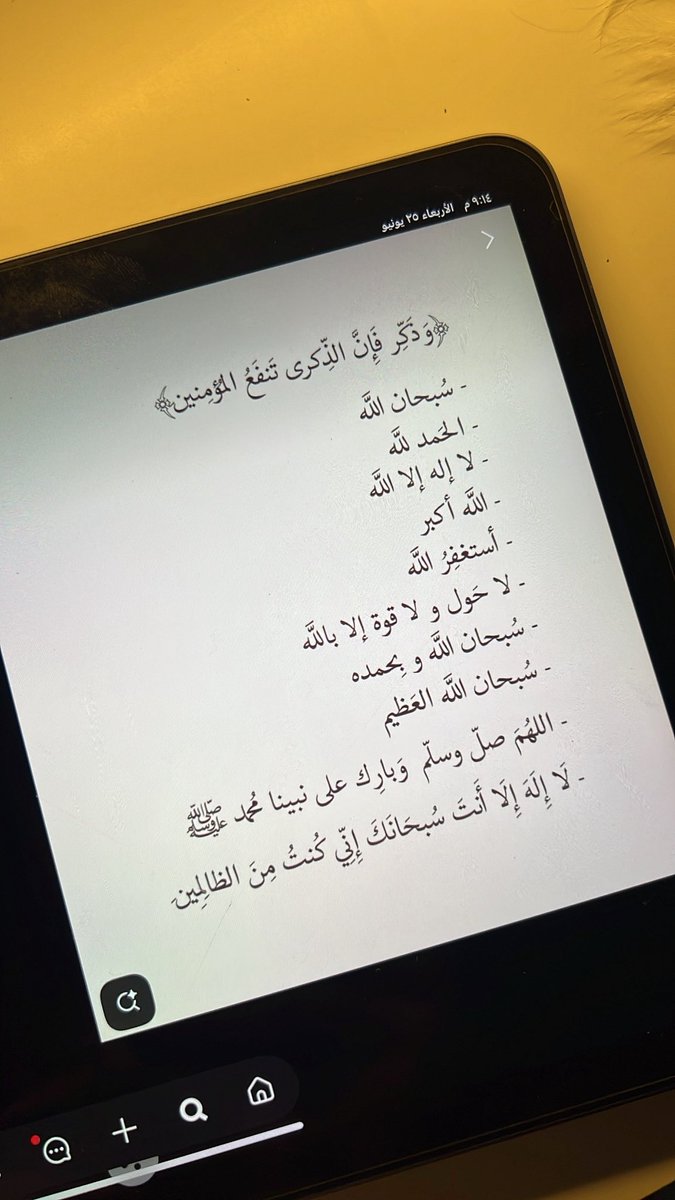 ٩:١٤ م الأربعاء ٢٥ يونيو
﴿وَذَكِّر فَإِنَّ الذِّكرى تَنفَعُ المُؤمِنين﴾
- سُبحان اللَّه
- الحَمد للَّه
- لا إله إلا اللَّه
- اللَّه أكبر
- أستغفِرُ اللَّه
- لا حَول و لا قوة إلا باللَّه
- سُبحان اللَّه و بِحمده
- سُبحان اللَّه العَظيم
- اللهُمَ صلّ وسلّم وَبارِك على نبينا مُحمد ﷺ
- لَا إِلَهَ إِلَا أَنتَ سُبحَانَكَ إِنِّي كُنتُ مِنَ الظالِمين